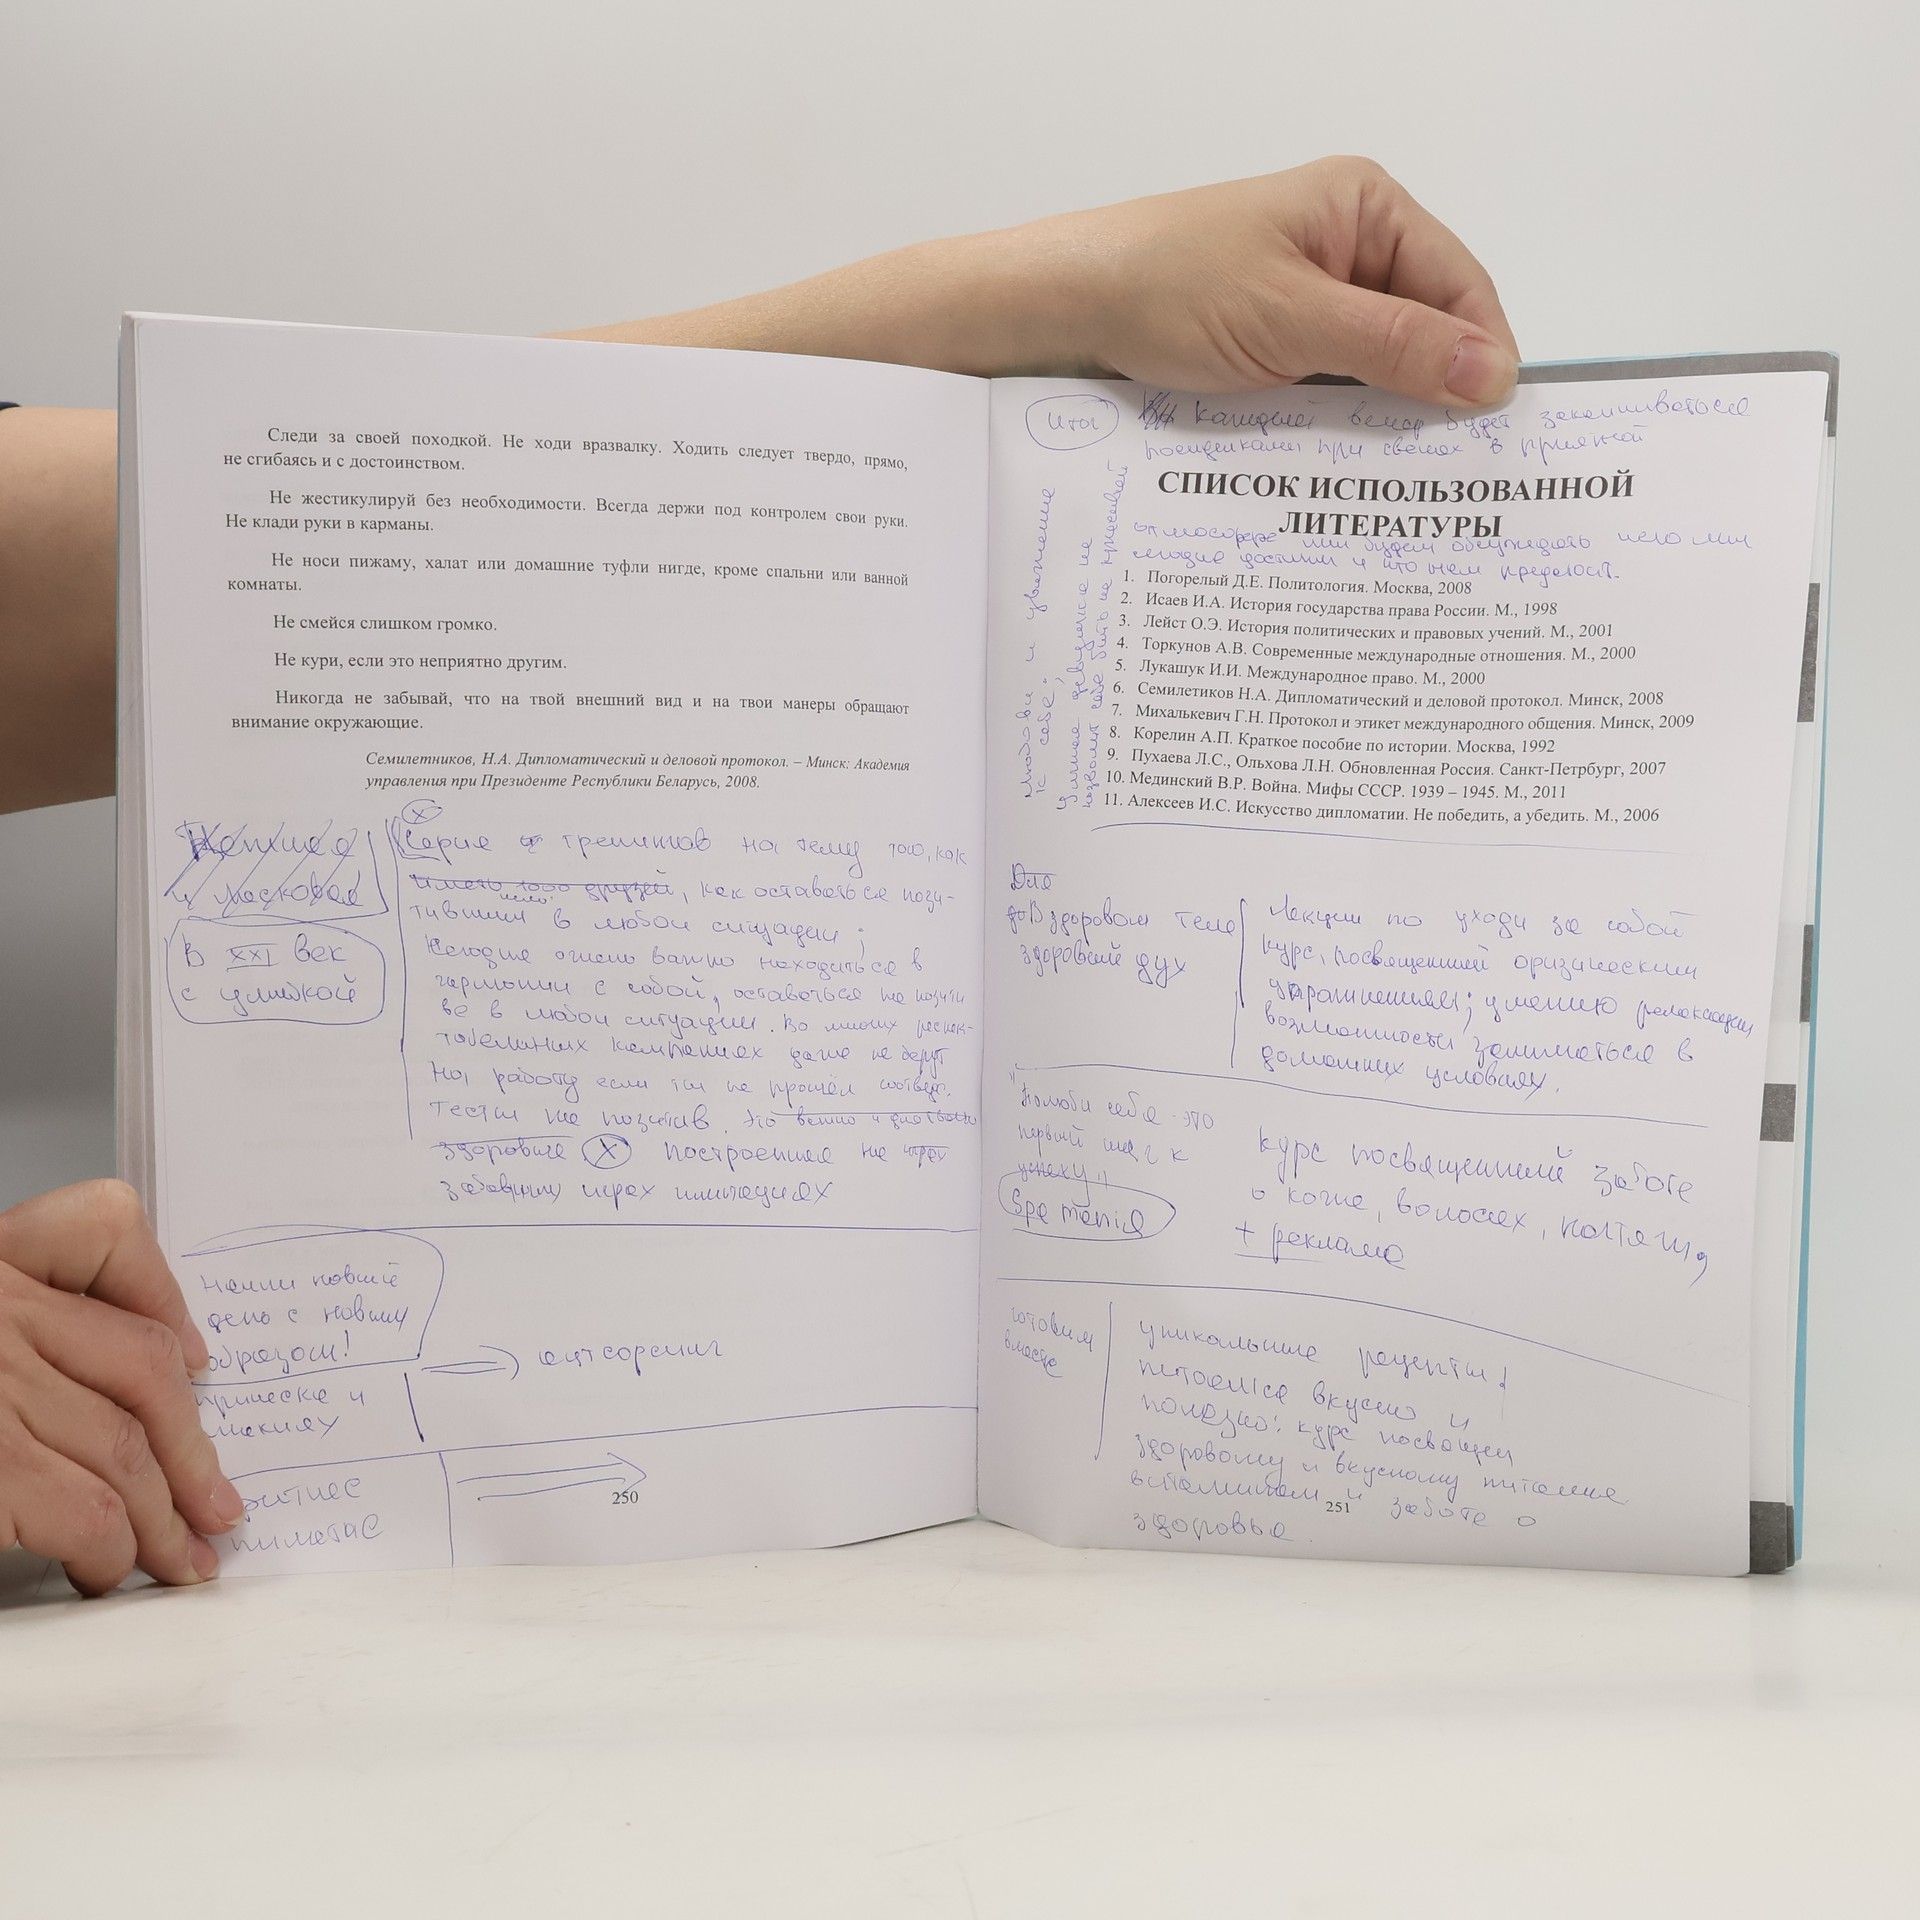 Следи за своей походкой. Не ходи вразвалку. Ходить следует твердо, прямо,
не сгибаясь и с достоинством.
Не жестикулируй без необходимости. Всегда держи под контролем свои руки.
Не клади руки в карманы.
Не носи пижаму, халат или домашние туфли нигде, кроме спальни или ванной
комнаты.
Не смейся слишком громко.
Не кури, если это неприятно другим.
Никогда не забывай, что на твой внешний вид и на твои манеры обращают
внимание окружающие.
Семилетников, Н.А. Дипломатический и деловой протокол. – Минск: Академия
управления при Президенте Республики Беларусь, 2008.
В XXI век
с улыбкой
Серия тренингов на тему того, как
иметь 1000 друзей, как оставаться пози-
тивным в любой ситуации;
Сегодня очень важно находиться в
гармонии с собой, оставаться на позити
ве в любой ситуации. Во многих респек-
табельных компаниях даже не берут
на работу если ты не прошёл
тесты на позитив. Это важно и для твоего
здоровья (X) построенная на
забавных играх имитациях
Начни новый
день с новым
образом!
причёска и
макияж
аутсорсинг
фитнес
пилатес
250
Итог
каждый вечер будет заканчиваться
посиделками при свечах в приятной
СПИСОК ИСПОЛЬЗОВАННОЙ
ЛИТЕРАТУРЫ
атмосфере мы будем обсуждать чего мы
сегодня достигли и что нам предстоит.
1. Погорелый Д.Е. Политология. Москва, 2008
2. Исаев И.А. История государства права России. М., 1998
3. Лейст О.Э. История политических и правовых учений. М., 2001
4. Торкунов А.В. Современные международные отношения. М., 2000
5. Лукашук И.И. Международное право. М., 2000
6. Семилетиков Н.А. Дипломатический и деловой протокол. Минск, 2008
7. Михалькевич Г.Н. Протокол и этикет международного общения. Минск, 2009
8. Корелин А.П. Краткое пособие по истории. Москва, 1992
9. Пухаева Л.С., Ольхова Л.Н. Обновленная Россия. Санкт-Петрбург, 2007
10. Мединский В.Р. Война. Мифы СССР. 1939 – 1945. М., 2011
11. Алексеев И.С. Искусство дипломатии. Не победить, а убедить. М., 2006
любви и уважение
к себе.
Умная девушка не
позволит себе быть не красивой
Для
В здоровом теле
здоровый дух
Лекции по уходу за собой
курс, посвященный физическим
упражнениям; умению релаксации
возможности заниматься в
домашних условиях.
"Полюби себя - это
первый шаг к
успеху"
Spa mania
курс посвященный заботе
о коже, волосах, ногтями,
+ реклама
готовим
вместе
уникальные рецепты!
питаемся вкусно и
полезно! курс посвящен
здоровому и вкусному питанию
витаминам и заботе о
здоровье.
251